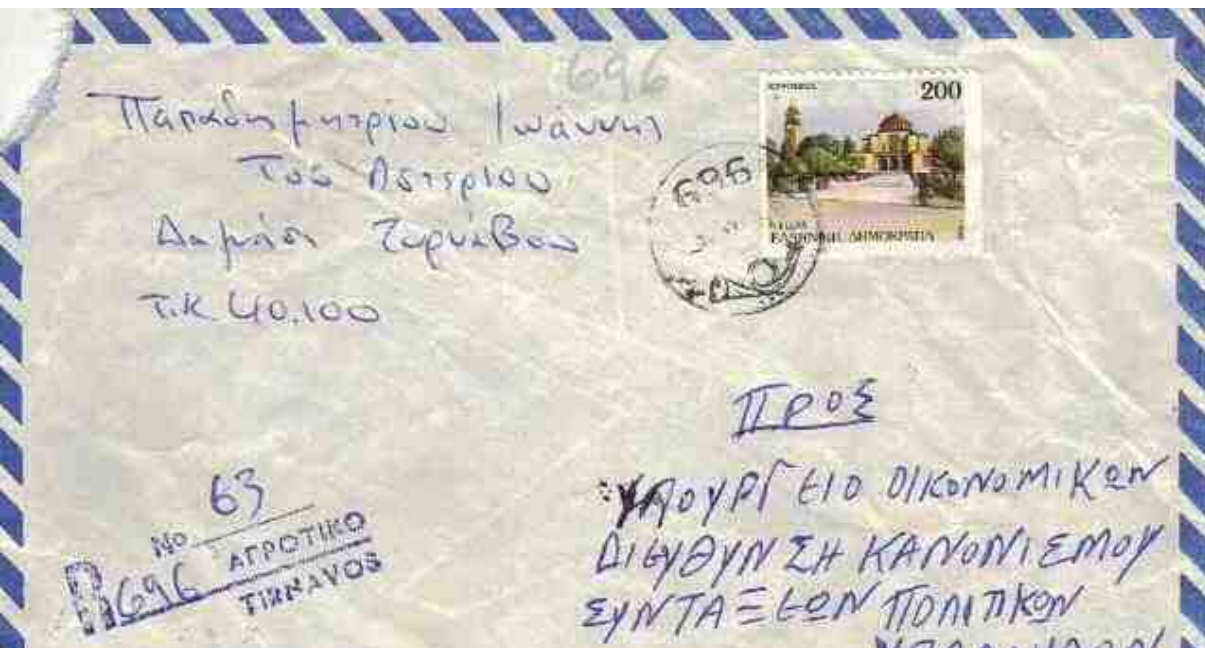 696
Παπαδημητρίου Ιωάννη
Του Αστερίου
Δαμάσι Τυρνάβου
Τ.Κ 40.100
200
ΕΛΛΗΝΙΚΗ ΔΗΜΟΚΡΑΤΙΑ
696
ΠΡΟΣ
ΥΠΟΥΡΓΕΙΟ ΟΙΚΟΝΟΜΙΚΩΝ
ΔΙΕΥΘΥΝΣΗ ΚΑΝΟΝΙΣΜΟΥ
ΣΥΝΤΑΞΕΩΝ ΠΟΛΙΤΙΚΩΝ
No 63
R 696 ΑΓΡΟΤΙΚΟ
TIRNAVOS